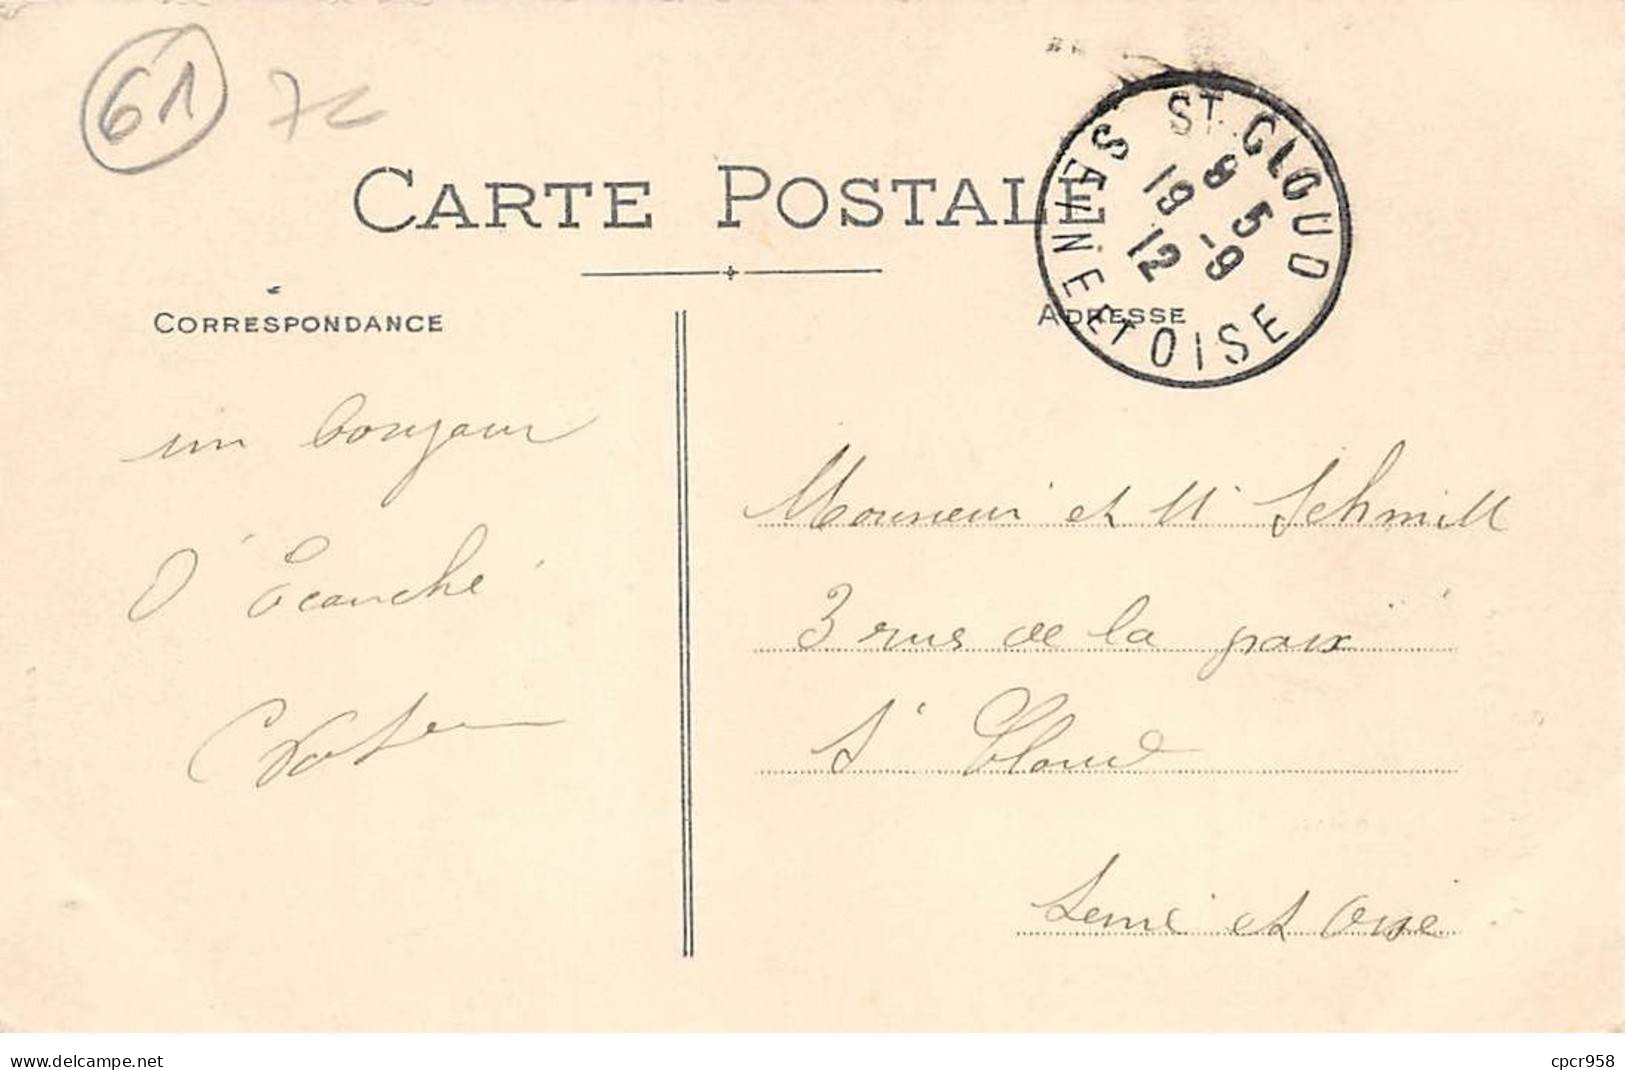 61 7c
CARTE POSTALE
ST CLOUD
8 5
19 -9
12
SEINE ET OISE
CORRESPONDANCE
ADRESSE
un bonjour
D' Ecouché
Monsieur et M Schmitt
3 rue de la paix
St Cloud
Seine et Oise
www.delcampe.net
cpcr958